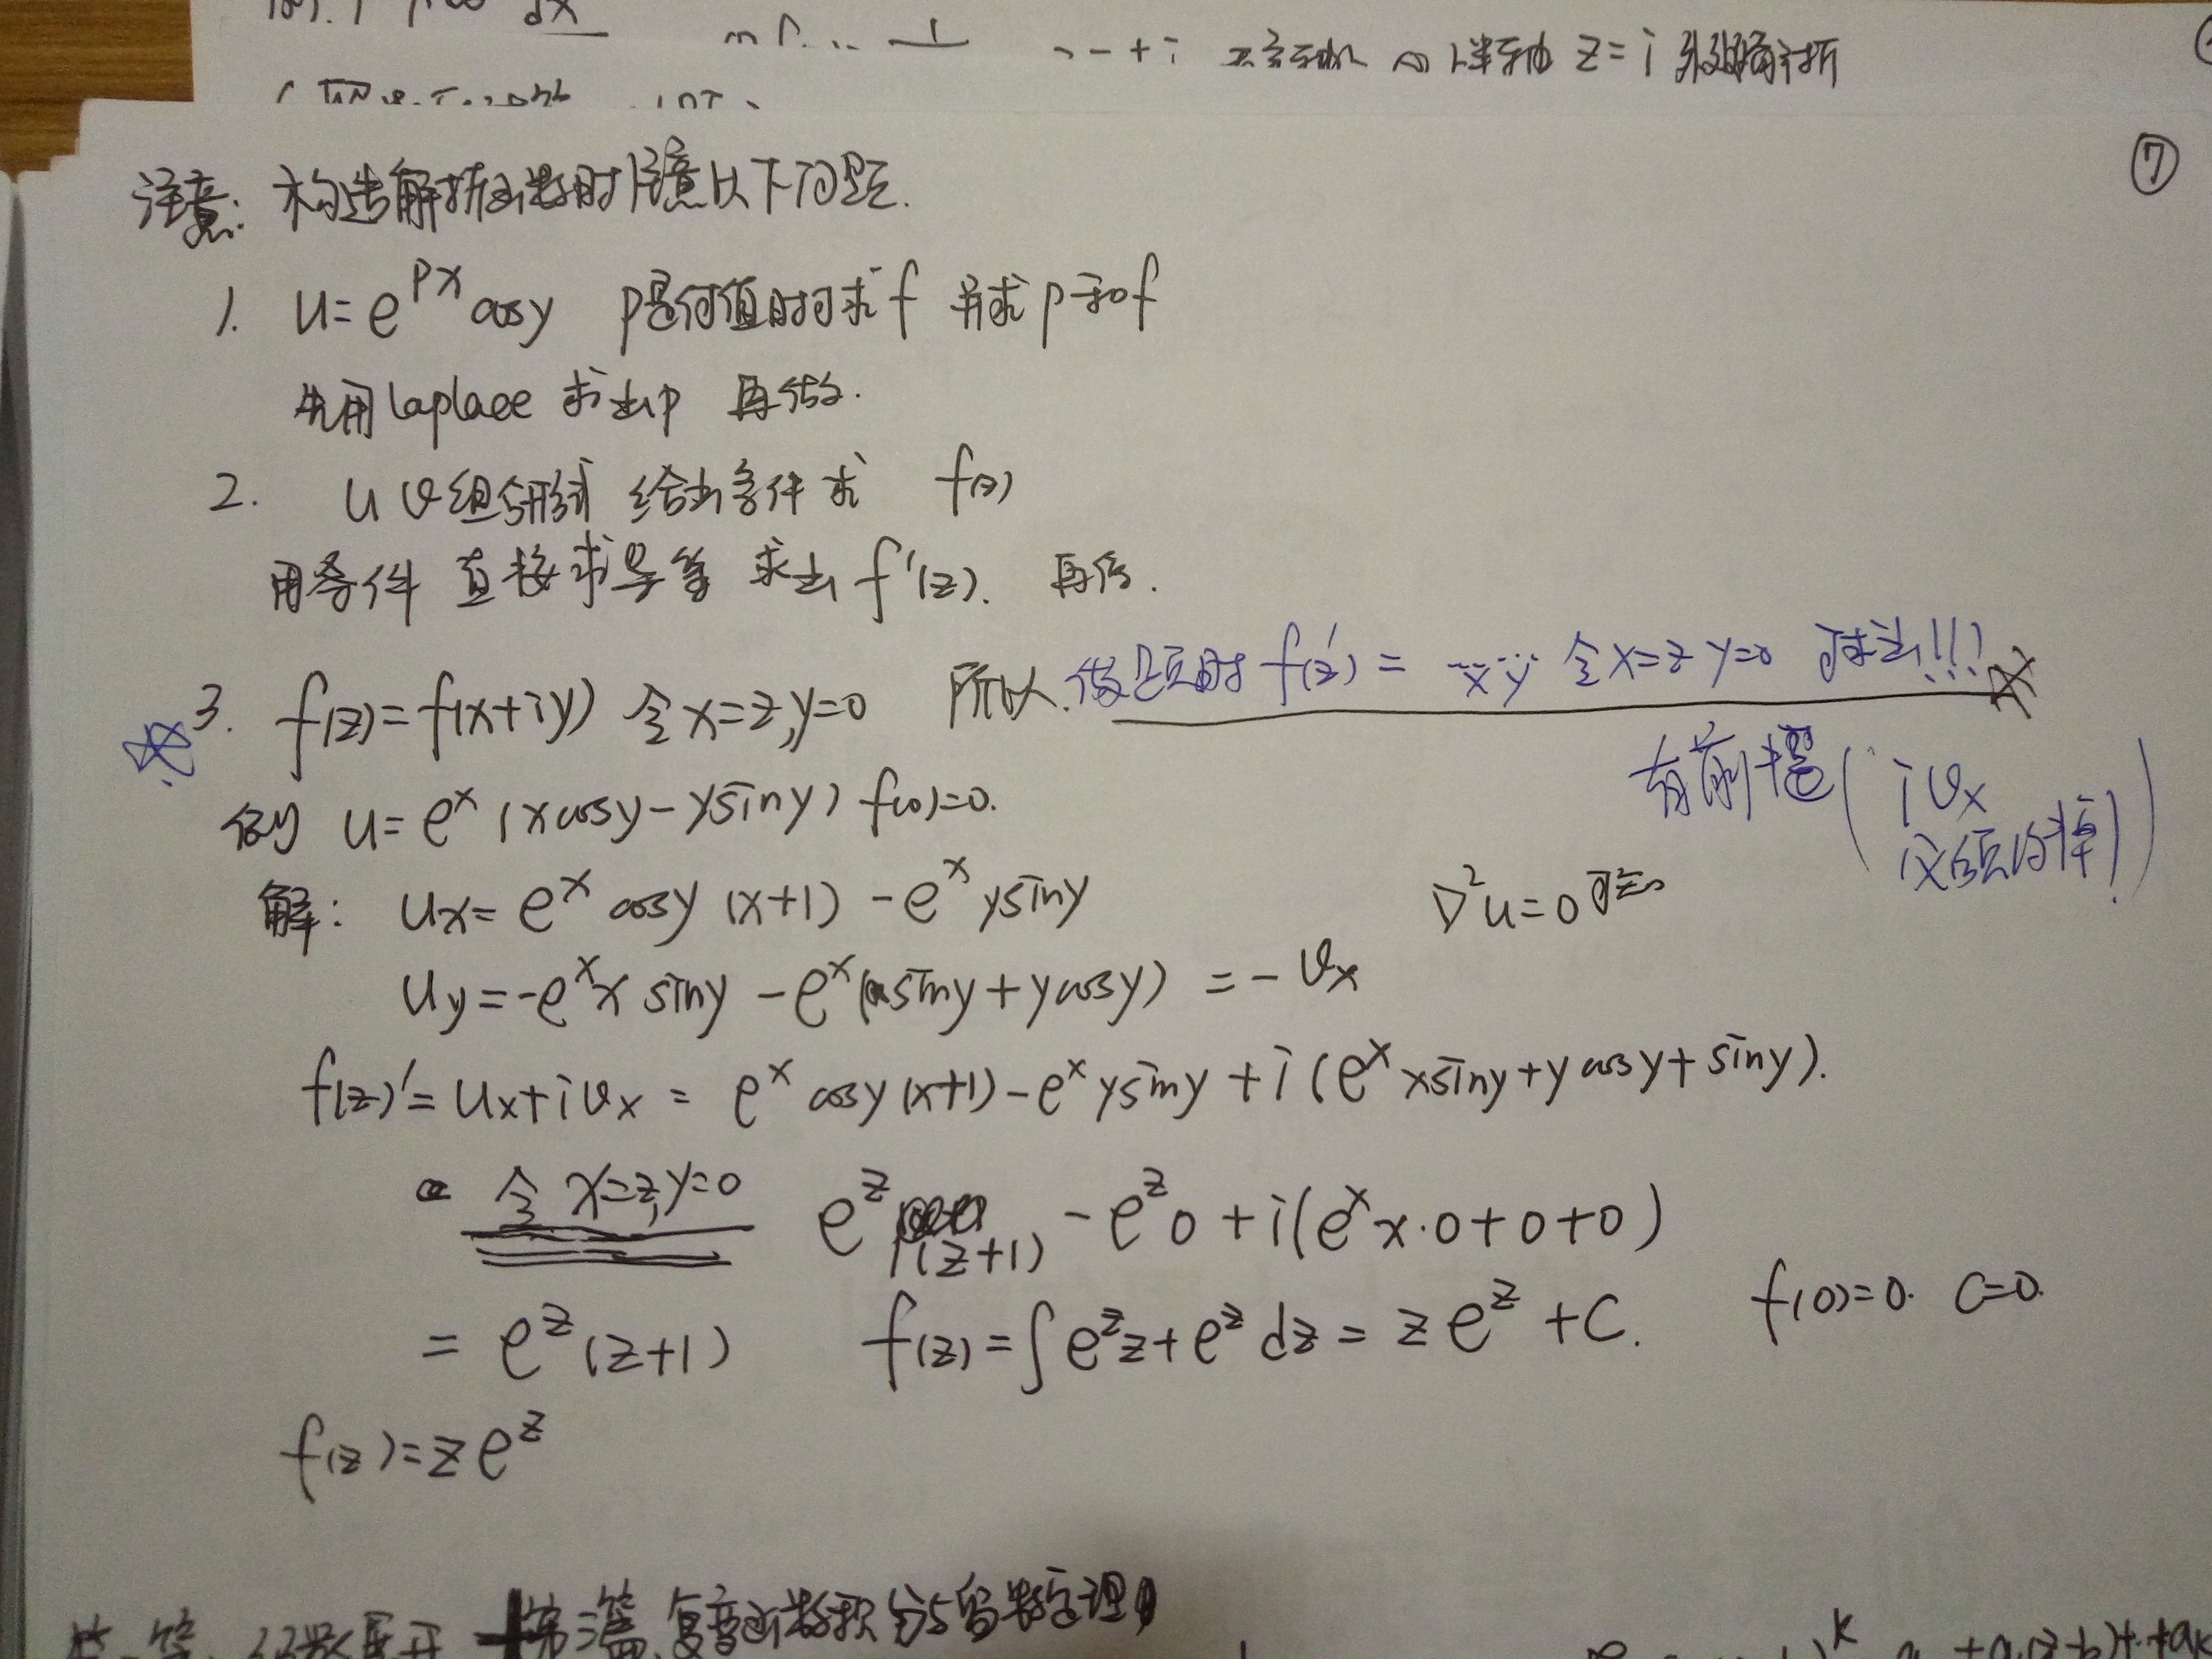 dx
z=i
⑦
注意: 构造解析函数时注意以下问题.
1. u=e^{px}cosy p是何值时可求f 并求p和f
先用laplace 求出p 再做.
2. u v组合形式 给出条件求 f(z)
用条件 直接求导等 求出f'(z). 再做.
3. f(z)=f(x+iy) 令x=z,y=0 所以.做题时f(z)'= ...x...y... 令x=z y=0 可求出!!!
有前提( iv_x
必须约掉!)
例 u=e^x(xcosy-ysiny) f(0)=0.
解: u_x=e^x cosy(x+1)-e^x ysiny ∇²u=0 可知
u_y=-e^x x siny-e^x(siny+ycosy)=-v_x
f(z)'=u_x+iv_x=e^x cosy(x+1)-e^x ysiny+i(e^x xsiny+ycosy+siny).
= 令 x=z,y=0 e^z(z+1)-e^z 0+i(e^x x·0+0+0)
=e^z(z+1) f(z)=∫e^z z+e^z dz=ze^z+C. f(0)=0. C=0.
f(z)=ze^z
级数展开 第二篇 复变函数积分与留数定理